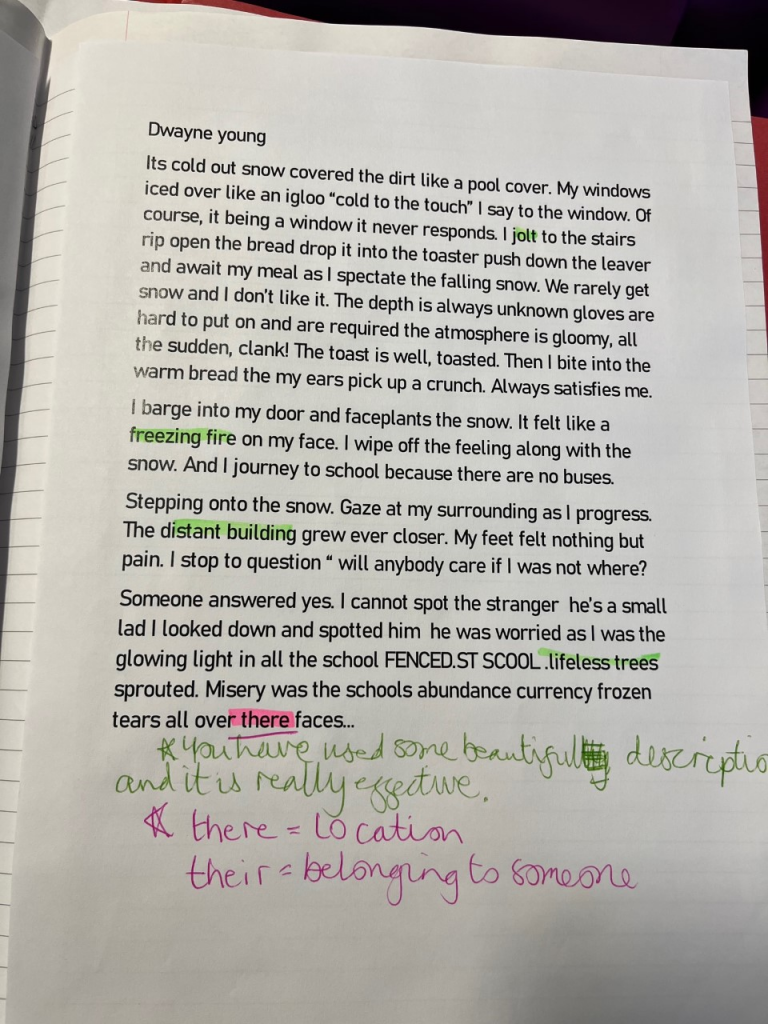 Dwayne young
Its cold out snow covered the dirt like a pool cover. My windows
iced over like an igloo “cold to the touch” I say to the window. Of
course, it being a window it never responds. I jolt to the stairs
rip open the bread drop it into the toaster push down the leaver
and await my meal as I spectate the falling snow. We rarely get
snow and I don’t like it. The depth is always unknown gloves are
hard to put on and are required the atmosphere is gloomy, all
the sudden, clank! The toast is well, toasted. Then I bite into the
warm bread the my ears pick up a crunch. Always satisfies me.
I barge into my door and faceplants the snow. It felt like a
freezing fire on my face. I wipe off the feeling along with the
snow. And I journey to school because there are no buses.
Stepping onto the snow. Gaze at my surrounding as I progress.
The distant building grew ever closer. My feet felt nothing but
pain. I stop to question “ will anybody care if I was not where?
Someone answered yes. I cannot spot the stranger he’s a small
lad I looked down and spotted him he was worried as I was the
glowing light in all the school FENCED.ST SCOOL .lifeless trees
sprouted. Misery was the schools abundance currency frozen
tears all over there faces...
You have used some beautiful descriptio
and it is really effective.
there = location
their = belonging to someone